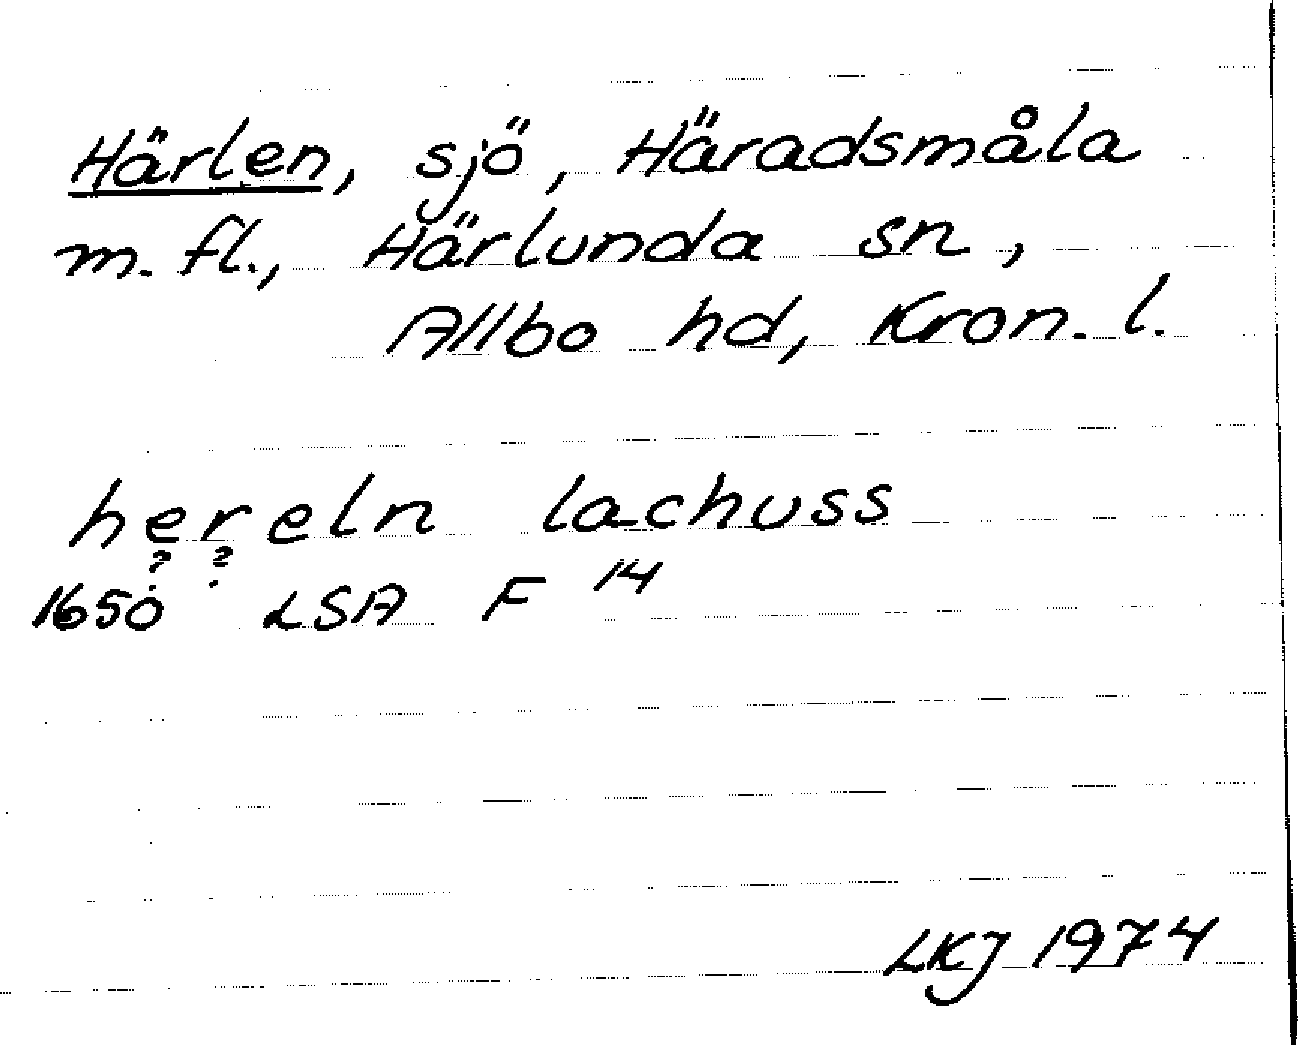 Härlen, sjö, Häradsmåla
m. fl., Härlunda sn,
Allbo hd, Kron. l.
hereln lachuss
? ?
1650 LSA F 14
LKJ 1974